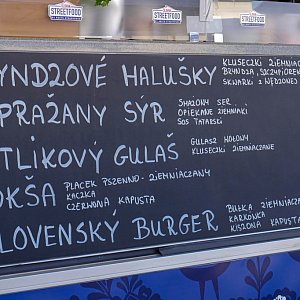 STREETFOOD
STREETFOOD
YNDZOVÉ HALUŠKY
KLUSECZKI ZIEMNIACZ
BRYNDZA, SZCZYPIOREK
SKWARKI Z WĘDZONEJ
PRAŻANY SÝR
SMAŻONY SER
OPIEKANE ZIEMNIAKI
SOS TATARSKI
TLIKOVÝ GULAŠ
GULASZ WOŁOWY
KLUSECZKI ZIEMNIACZANE
OKŠA
PLACEK PSZENNO-ZIEMNIACZANY
KACZKA
CZERWONA KAPUSTA
LOVENSKÝ BURGER
BUŁKA ZIEMNIACZAN
KARKÓWKA
KISZONA KAPUSTA